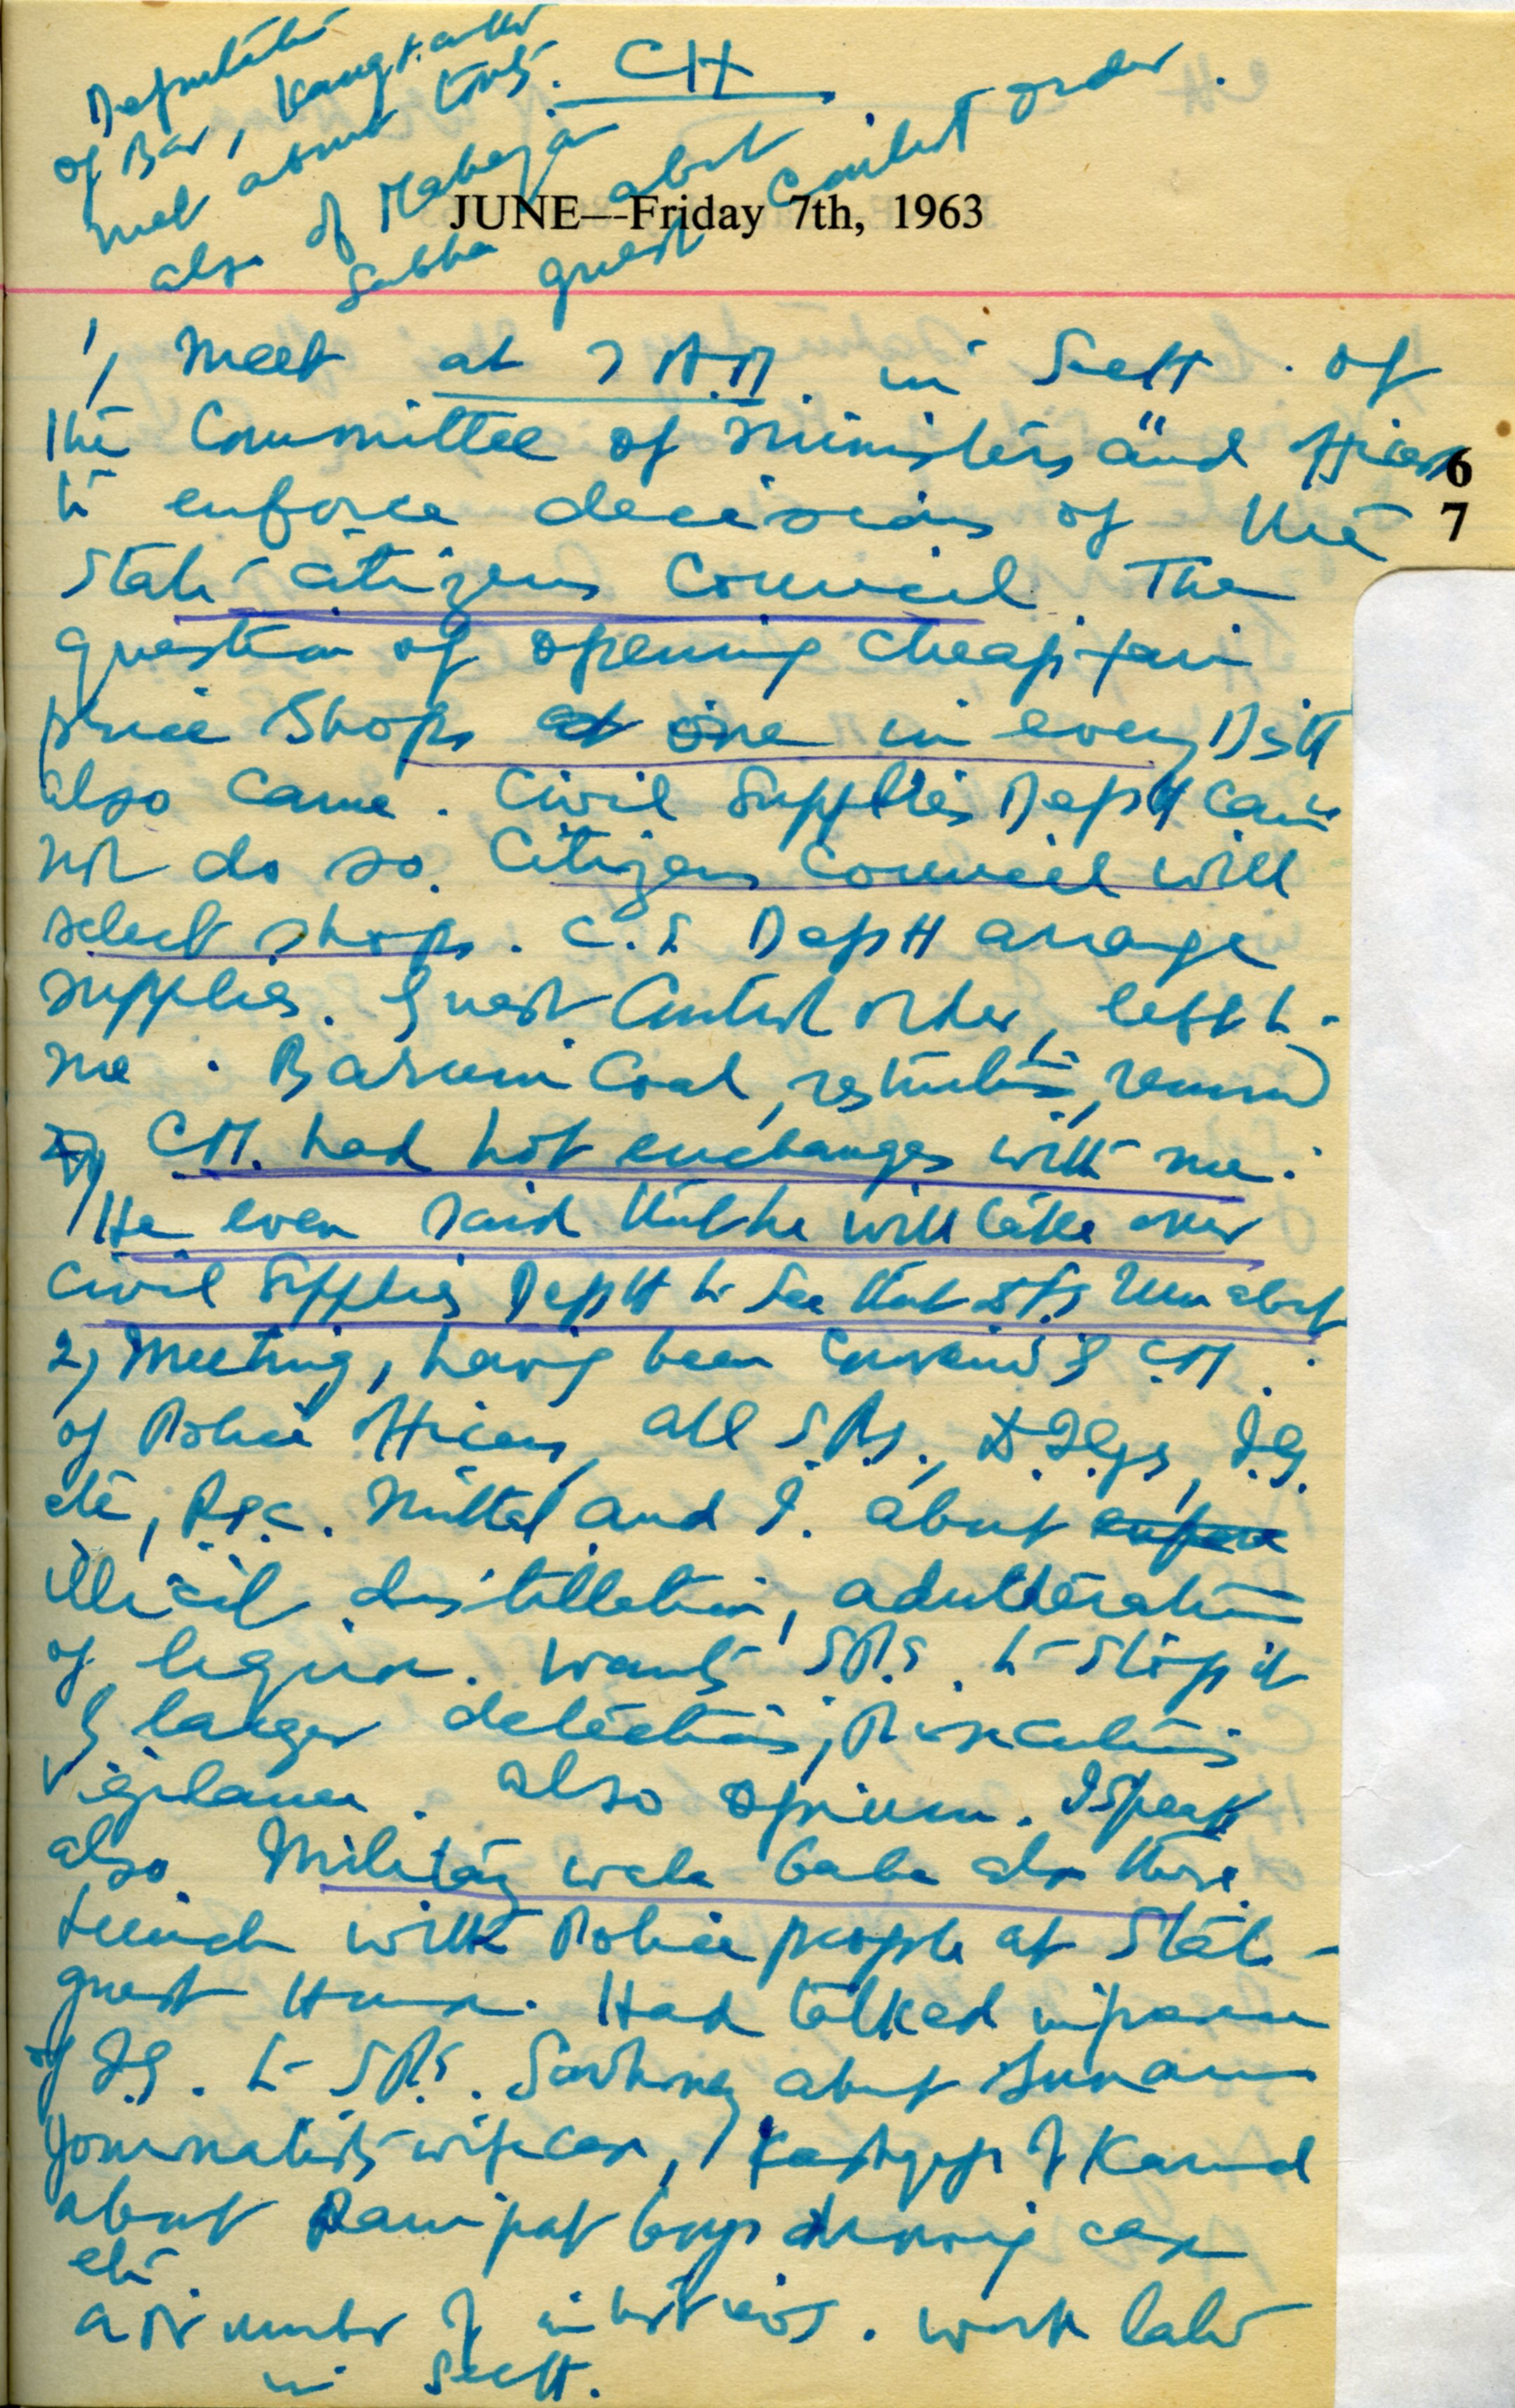 CH
Deputation
of Bar, Kangra
met about
also of Mahajan
Sabha about
guest Control order.
JUNE—Friday 7th, 1963
6
7
1, Meet at 7 A.M. in Sectt. of
the Committee of Ministers and officers
to enforce decisions of the
State Citizens Council. The
question of opening cheap fair
price Shops one in every Distt
also came. Civil Supplies Deptt can
not do so. Citizens Council will
select shops. C.S Deptt arrange
supplies. Guest Control order, left to
me. Barauni Coal, restriction, removed
C.M. had hot exchanges with me.
He even said that he will take over
Civil Supplies Deptt to see that
2, Meeting, having been convened by C.M.
of Police officers, all S.P.s., D.I.Gs, I.G.
etc, Mittal and I. about
illicit distillation, adulteration
of liquor. Wants S.P.s. to stop it
by larger detections, Prosecutions
Vigilance. also opium. I speak
also. Military wale Baba also there.
Lunch with Police people at State
guest House. Had talked in presence
of I.G. to S.P.s. about Sunam
Journalist's wife case, Kashyap of Karnal
about Panipat boys drowning case
etc.
A number of interviews. Work later
in Sectt.